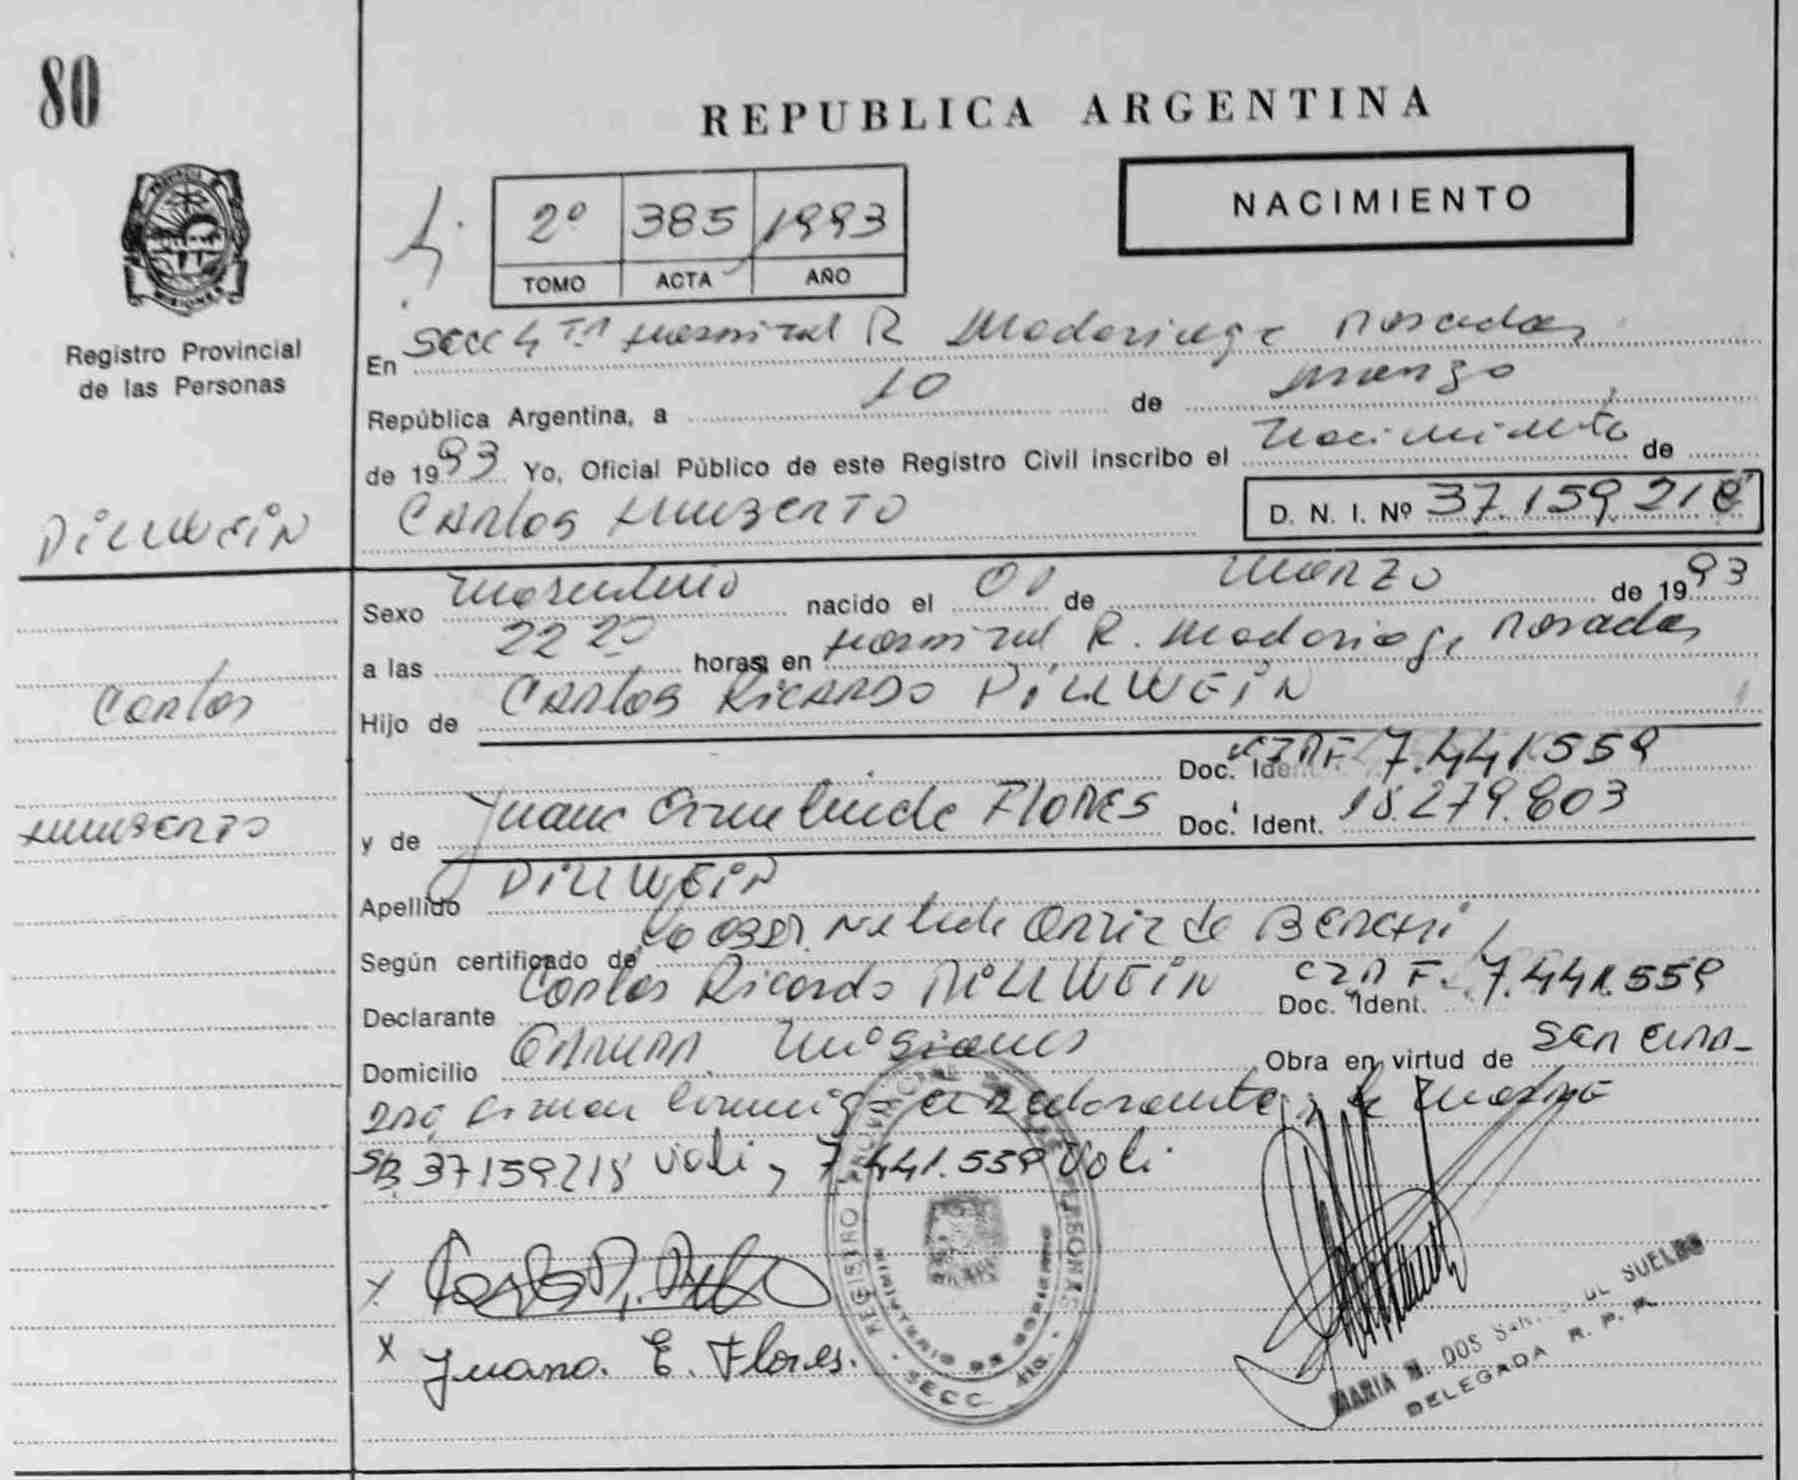 80
REPUBLICA ARGENTINA
NACIMIENTO
2º 385 1993
TOMO ACTA AÑO
PROVINCIA DE
MISIONES
Registro Provincial
de las Personas
En Secc 4ta Hospital R Madariaga Posadas
República Argentina, a 10 de marzo
de 1993 Yo, Oficial Público de este Registro Civil inscribo el Nacimiento de
Carlos Humberto
D. N. I. Nº 37.159.218
DILLWEIN
Carlos
Humberto
Sexo masculino nacido el 01 de marzo de 1993
a las 22 20 horas en Hospital R. Madariaga Posadas
Hijo de Carlos Ricardo DILLWEIN
Doc. Ident. 7.441.559
y de Juana Ermelinda FLORES Doc. Ident. 18.279.803
Apellido DILLWEIN
Según certificado de Obst. Nelida Ortiz de
Declarante Carlos Ricardo DILLWEIN Doc. Ident. 7.441.559
Domicilio Misiones Obra en virtud de ser
firman conmigo el declarante y la madre
S/B 37159218 vale, 7.441.559 Vale.
X
X Juana. E. Flores.
REGISTRO PROVINCIAL DE LAS PERSONAS
MINISTERIO DE GOBIERNO
SECC. 4ta.
MARIA M. DOS SANTOS DE SUELDO
DELEGADA R. P. P.